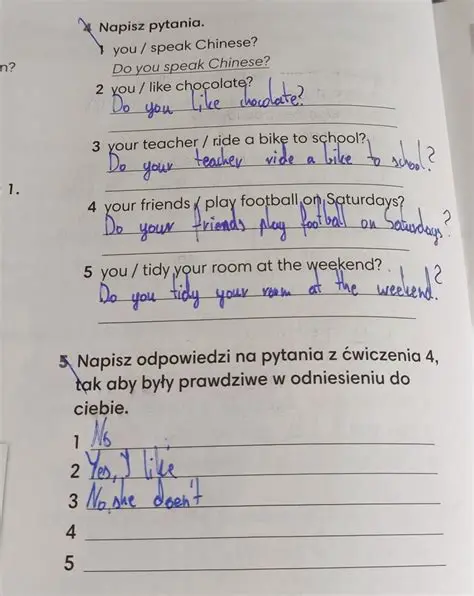 4 Napisz pytania.
1 you / speak Chinese?
n?
Do you speak Chinese?
2 you / like chocolate?
Do you like chocolate?
3 your teacher / ride a bike to school?
Do your teacher ride a bike to school?
1.
4 your friends / play football on Saturdays?
Do your friends play football on Saturdays?
5 you / tidy your room at the weekend?
Do you tidy your room at the weekend?
5 Napisz odpowiedzi na pytania z ćwiczenia 4,
tak aby były prawdziwe w odniesieniu do
ciebie.
1 No
2 Yes, I like
3 No, she doen't
4
5